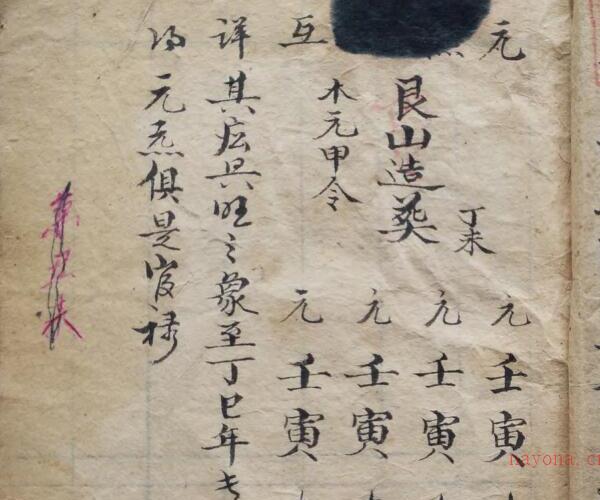 元
丁未
元壬寅
艮山造葬
元壬寅
木元甲令
元壬寅
互
元壬寅
詳其旺之象至丁巳年
元炁俱是祿
nayona.cn